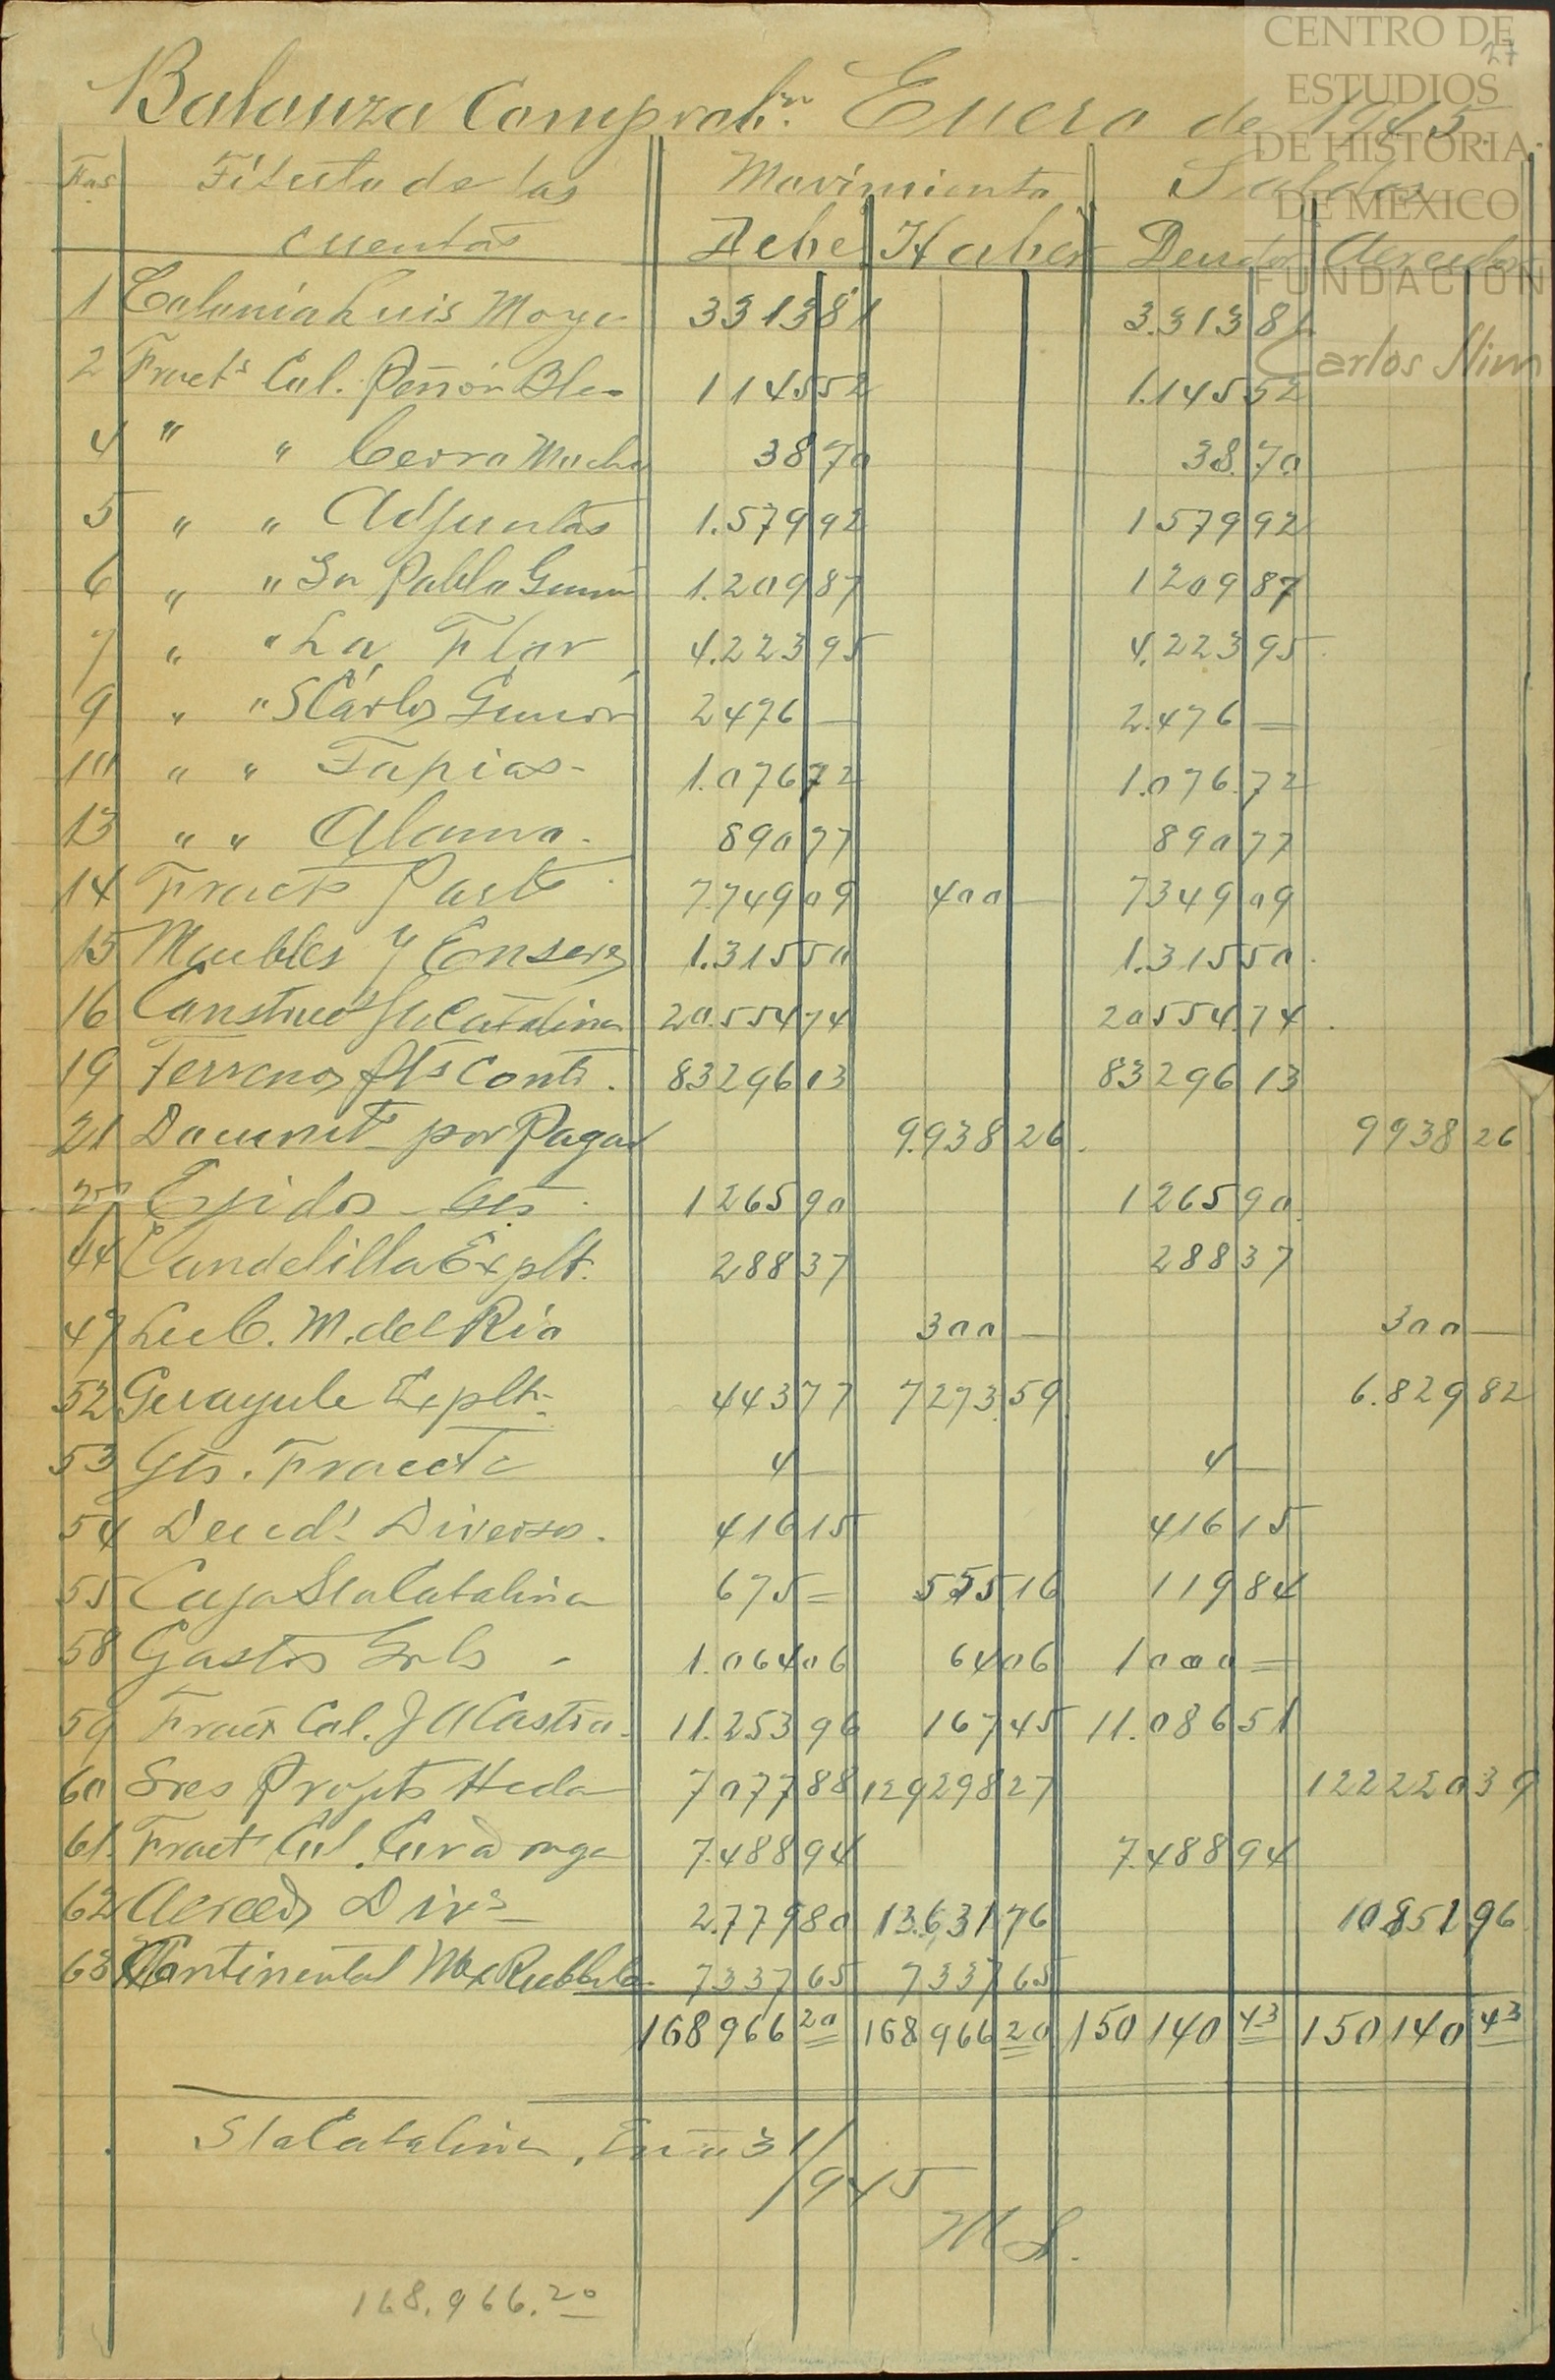 CENTRO DE
ESTUDIOS
DE HISTORIA
DE MÉXICO
FUNDACIÓN
Carlos Slim
27
Balanza Comprobn. Enero de 1945.
Título de las Movimiento Saldos
cuentas Debe Haber Deudor Acreedor
1 Colonia Luis Moya 3313 81 3.313 81
2 Fracts Col. Peñón Blco 1145 52 1.145 52
4 " " Cerro Mocho 38 70 38.70
5 " " Adjuntas 1.579 92 1579 92
6 " " Sn Pablo 1.209 87 1209 87
7 " " La Flor 4.223 95 4.223 95
9 " " S Carlos 2476 — 2.476 —
10 " " Tapias 1.076 72 1.076.72
13 " " Alamo 890 77 890 77
14 Fracts Part 7.749 09 400 — 7349 09
15 Muebles y Enseres 1.315 50 1.315 50
16 Construcs Sta Catalina 20.554 74 20554.74
19 Terrenos Conts. 83296 13 83296 13
21 Documts por Pagar 9.938 26 9938 26
Ejidos Gts 1265 90 1265 90
44 Candelilla Explt. 288 37 288 37
47 Lub. M. del Río 300 — 300 —
52 Guayule Explt. 443 77 7273.59 6.829 82
53 Gts. Fracctc 4 — 4 —
54 Deuds Diversos. 416 15 416 15
55 Caja Sta Catalina 675 = 555 16 119 84
58 Gastos Grls 1.064 06 64 06 1000 =
59 Fracts Col. J A Castro 11.253 96 167 45 11.086 51
60 Sres Propts Hcda 7077 88 129298 27 122220 39
61. Fracts Col. Curd 7.488 94 7.488 94
62 Acreeds Divs 2.779 80 13.631 76 10851 96
63 Continental Mex Rubber 7337 65 7337 65
168 966 20 168 966 20 150 140 43 150 140 43
Sta Catalina, Eno 31/945
168.966.20